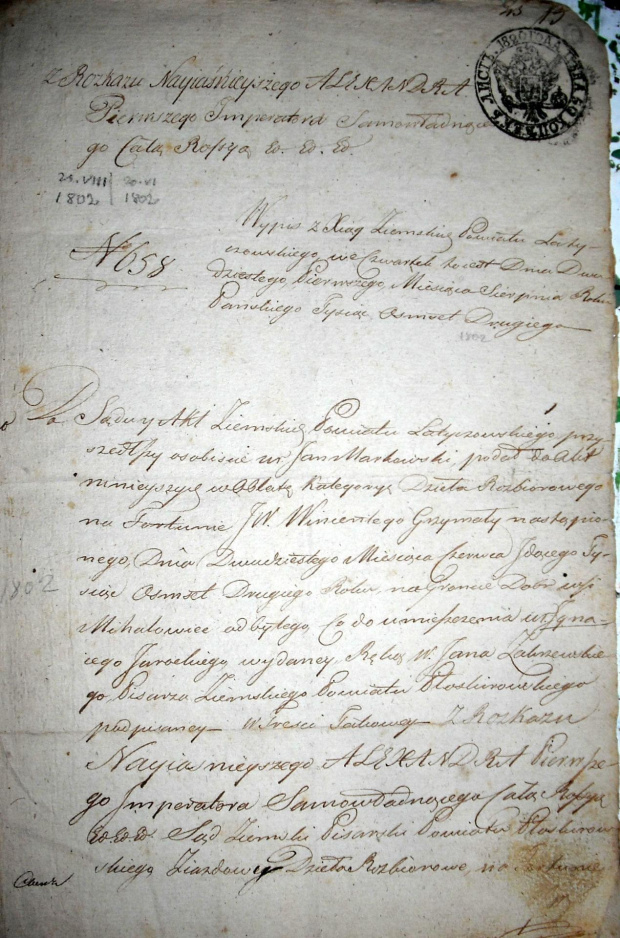 Z Rozkazu Nayiaśnieyszego ALEXANDRA
Pierwszego Imperatora Samowładnące
go Całą Rossyą Ed. Ed. Ed.
ЛИСТЪ 1801 ГОДА ЦѢНА 60 КОПѢЕКЪ
25.VIII 20.VI
1802 1802
N 658
Wypis z Xiąg Ziemskich Powiatu Laty-
czowskiego, we Czwartek to iest Dnia Dwu
dziestego Pierwszego Miesiąca Sierpnia Roku
Pańskiego Tysiąc Osmset Drugiego
1802
Do Sądu y Akt Ziemskich Powiatu Latyczowskiego, przy-
szedłszy osobiscie ur. Jan Markowski, podał do Akt
ninieyszych w Oblatę Kategoryą Dzieła Rozbiorowego
na Fortunie J.W. Wincentego Grzymały nastąpio-
nego, Dnia Dwudziestego Miesiąca Czerwca Idącego Ty-
siąc Osmset Drugiego Roku, na Gruncie Dobr wsi
1802
Mihałowiec odbytego, Co do umieszczenia ur. Igna-
cego Jarockiego, wydaney, Ręką W. Jana Zakrzewskie-
go, Pisarza Ziemskiego Powiatu Płoskirowskiego
podpisaney – w Treści Takowey – Z Rozkazu
Nayiaśnieyszego ALEXANDRA Pierwsze-
go Imperatora Samowładnącego Całą Rossyą
Ed. Ed. Ed. Sąd Ziemski Pisarski Powiatu Płoskirow-
skiego Ziazdowy Dzieła Rozbiorowe, na Fortunie